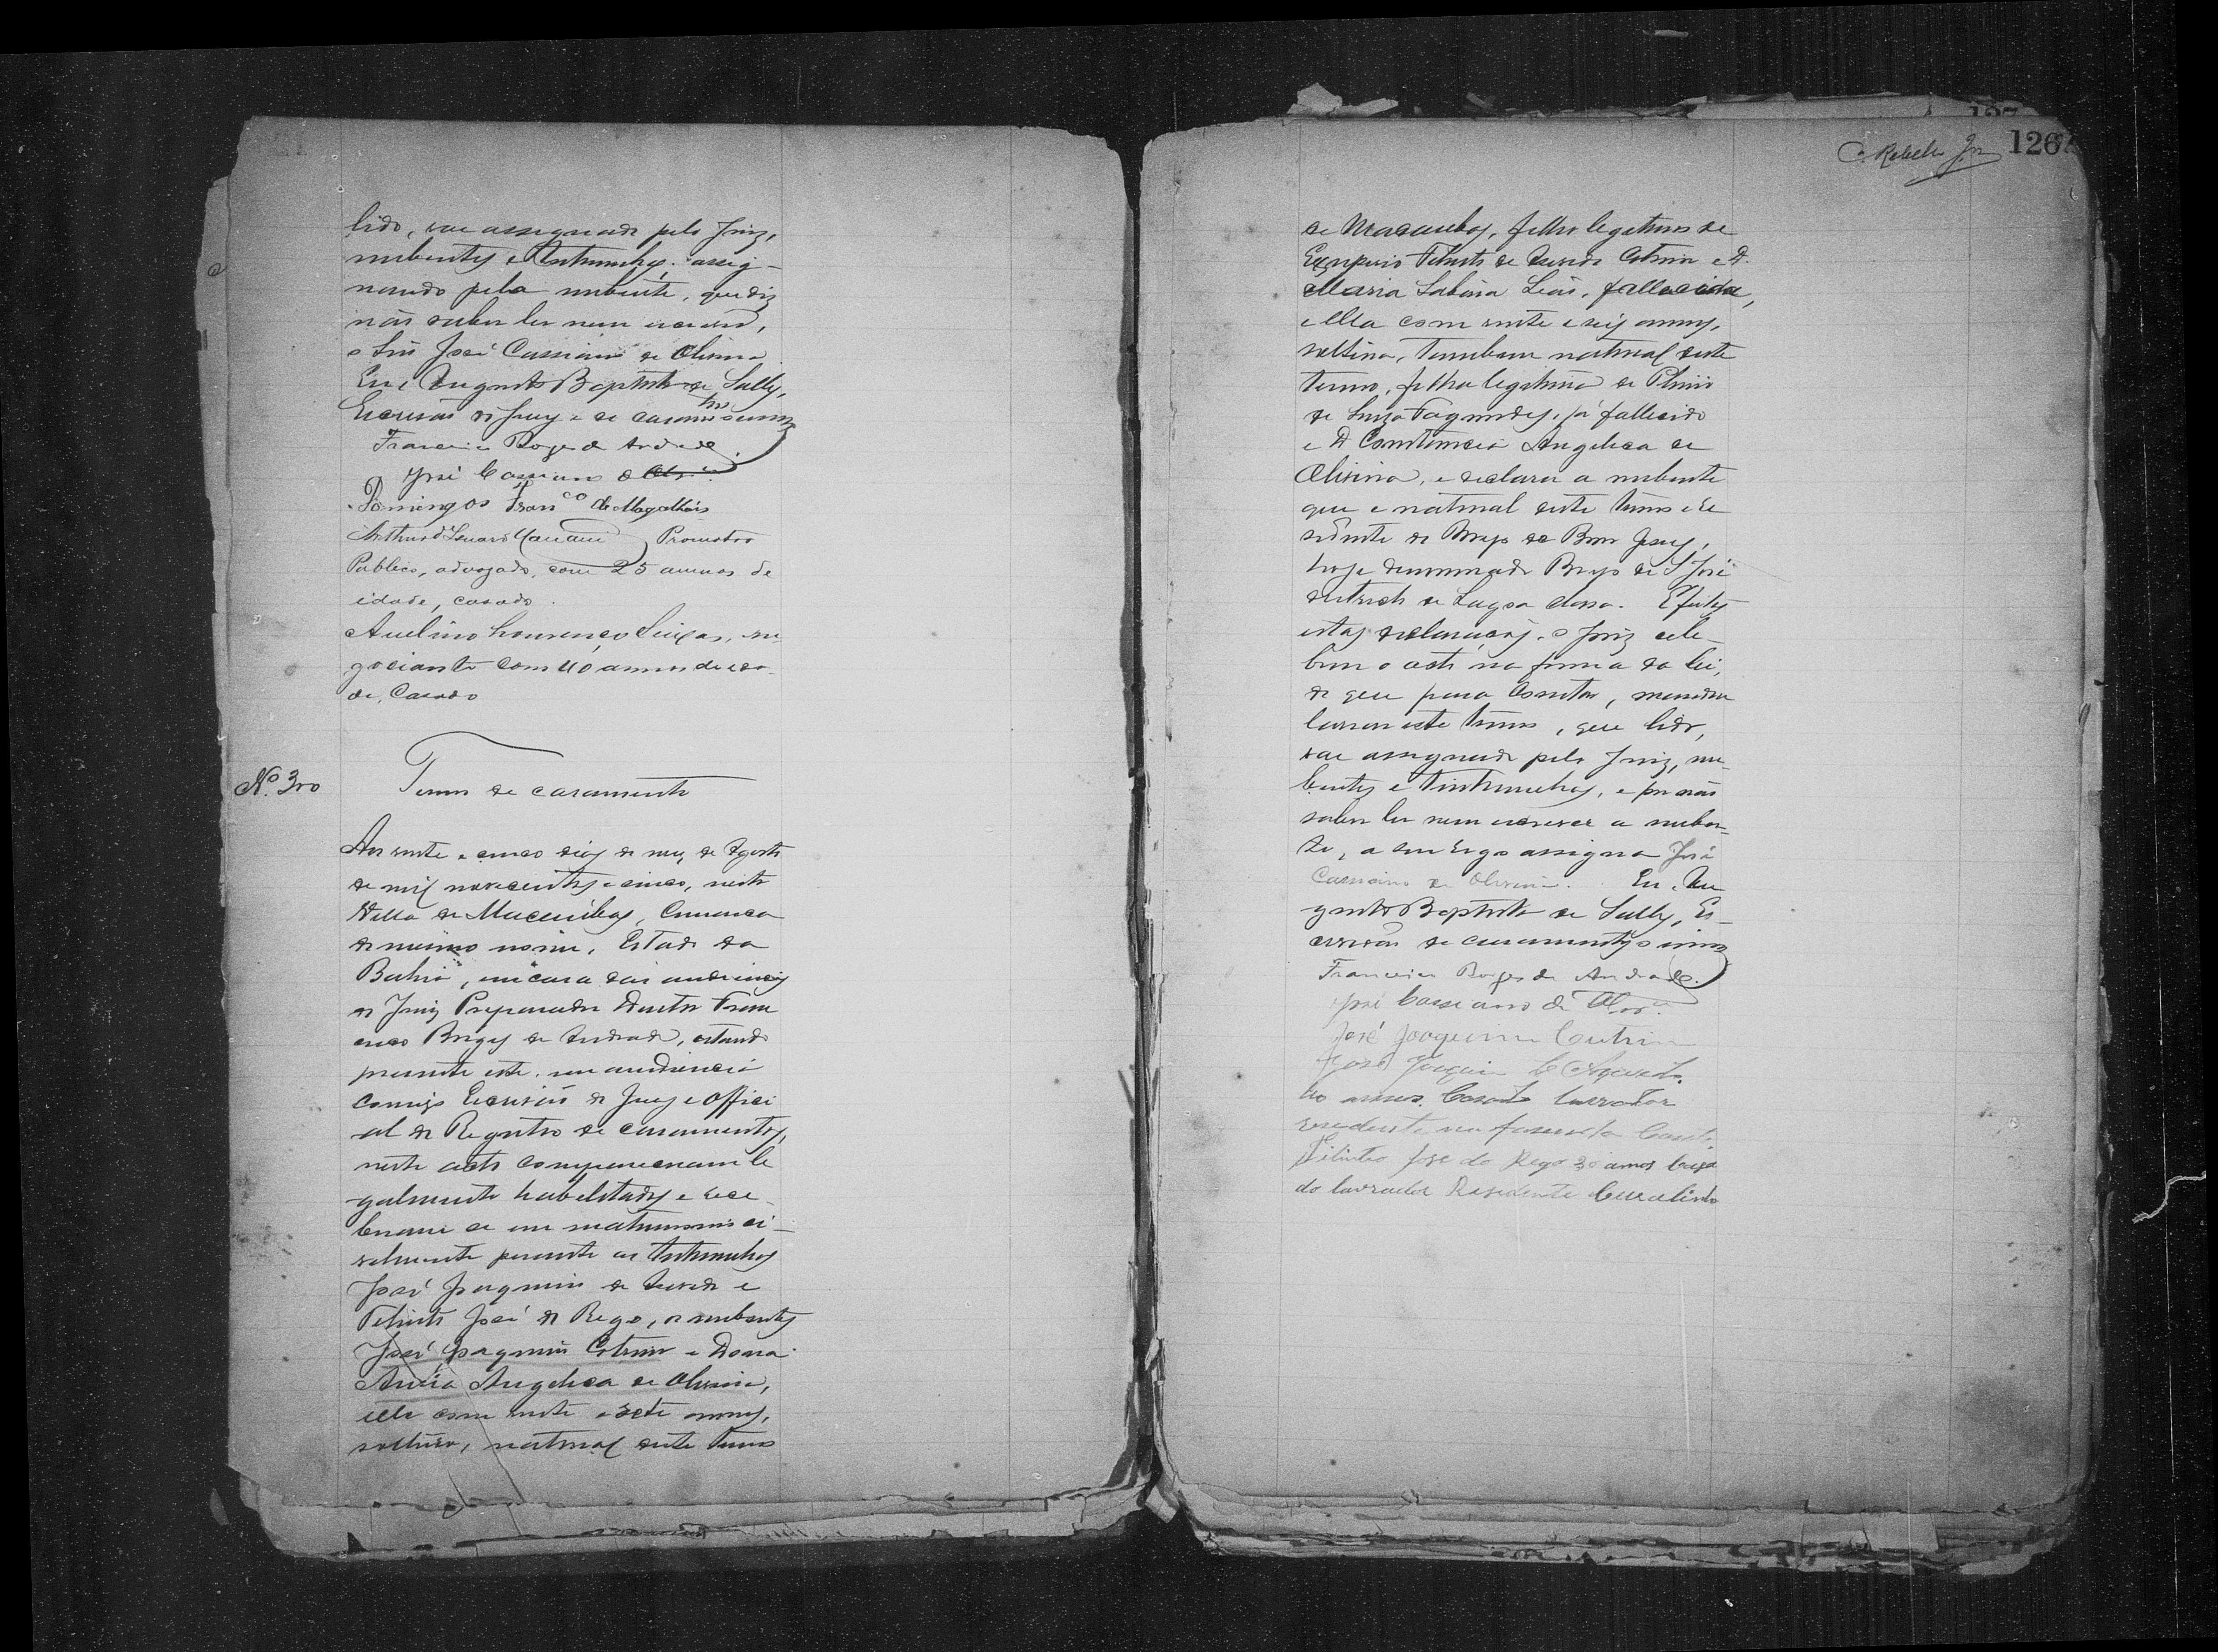 lido, vae assignado pelo Juiz,
nubentes e testemunhas, assig-
nando pela nubente, que diz
não saber ler nem escrever,
o Snr José Cassiano de Oliveira
Eu, Augusto Baptista de Sally,
Escrivão de Jury e de casamtos o escrevi
Francisco Borges de Andrade.
José Cassiano de Olivª
Domingos Franco de Magalhães
Arthur Promotor
Publico, advogado, com 25 annos de
idade, casado.
Avelino Lourenço Seixas, ne-
gociante com 40 annos de ida-
de, Casado
Nº 300
Termo de casamento
Aos vinte e cinco dias do mez de Agosto
de mil novecentos e cinco, nesta
Villa de Macaúbas, Comarca
do mesmo nome, Estado da
Bahia, em casa das audiencias
do Juiz Preparador Doutor Fran
cisco Borges de Andrade, estando
presente este em audiencia
comigo Escrivão do Jury e Offici
al do Registro de casamentos,
neste acto compareceram le
galmente habilitados e rece
beram se em matrimonio ci-
vilmente perante as testemunhas
José Joaquim de Azevedo e
Filinto José do Rego, os nubentes
José Joaquim Cotrim e Dona
Anna Angelica de Oliveira,
elle com vinte e sete annos,
solteiro, natural deste termo
C. Rebello Jr 126
de Macaubas, filho legitimo de
Filinto de Azevedo Cotrim e D.
Maria Sabina Leão, fallecida,
e ella com vinte e seis annos,
solteira, tambem natural deste
termo, filha legitima de Plinio
de Souza Fagundes, já fallecido
e D Constancia Angelica de
Oliveira, e declara a nubente
que é natural deste termo e re
sidente no Brejo de Bom Jesus,
hoje denominado Brejo de S José
districto de Lagoa Clara. E feitas
estas declarações, o Juiz cele-
brou o acto na forma da lei,
do que para constar, mandou
lavrar este termo, que lido,
vae assignado pelo Juiz, nu-
bentes e testemunhas, e por não
saber ler nem escrever a nuben-
te, a seu rogo assigna José
Cassiano de Oliveira. Eu, Au
gusto Baptista de Sally, Es-
crivão de casamentos o escrevi
Francisco Borges de Andrade.
José Cassiano de Olivª
José Joaquim Cutrim
José Joaquim de Azevedo
40 annos. Casado lavrador
residente na fasenda
Filinto José do Rego 30 annos Caza
do lavrador Residente Curralinho